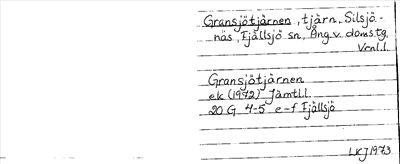 Gransjötjärnen, tjärn, Silsjö-
näs, Fjällsjö sn, Ång. v. doms.tg,
Vrnl.l.
Gransjötjärnen
ek (1972) Jämtl.l.
20 G 4-5 e-f Fjällsjö
LKJ 1973